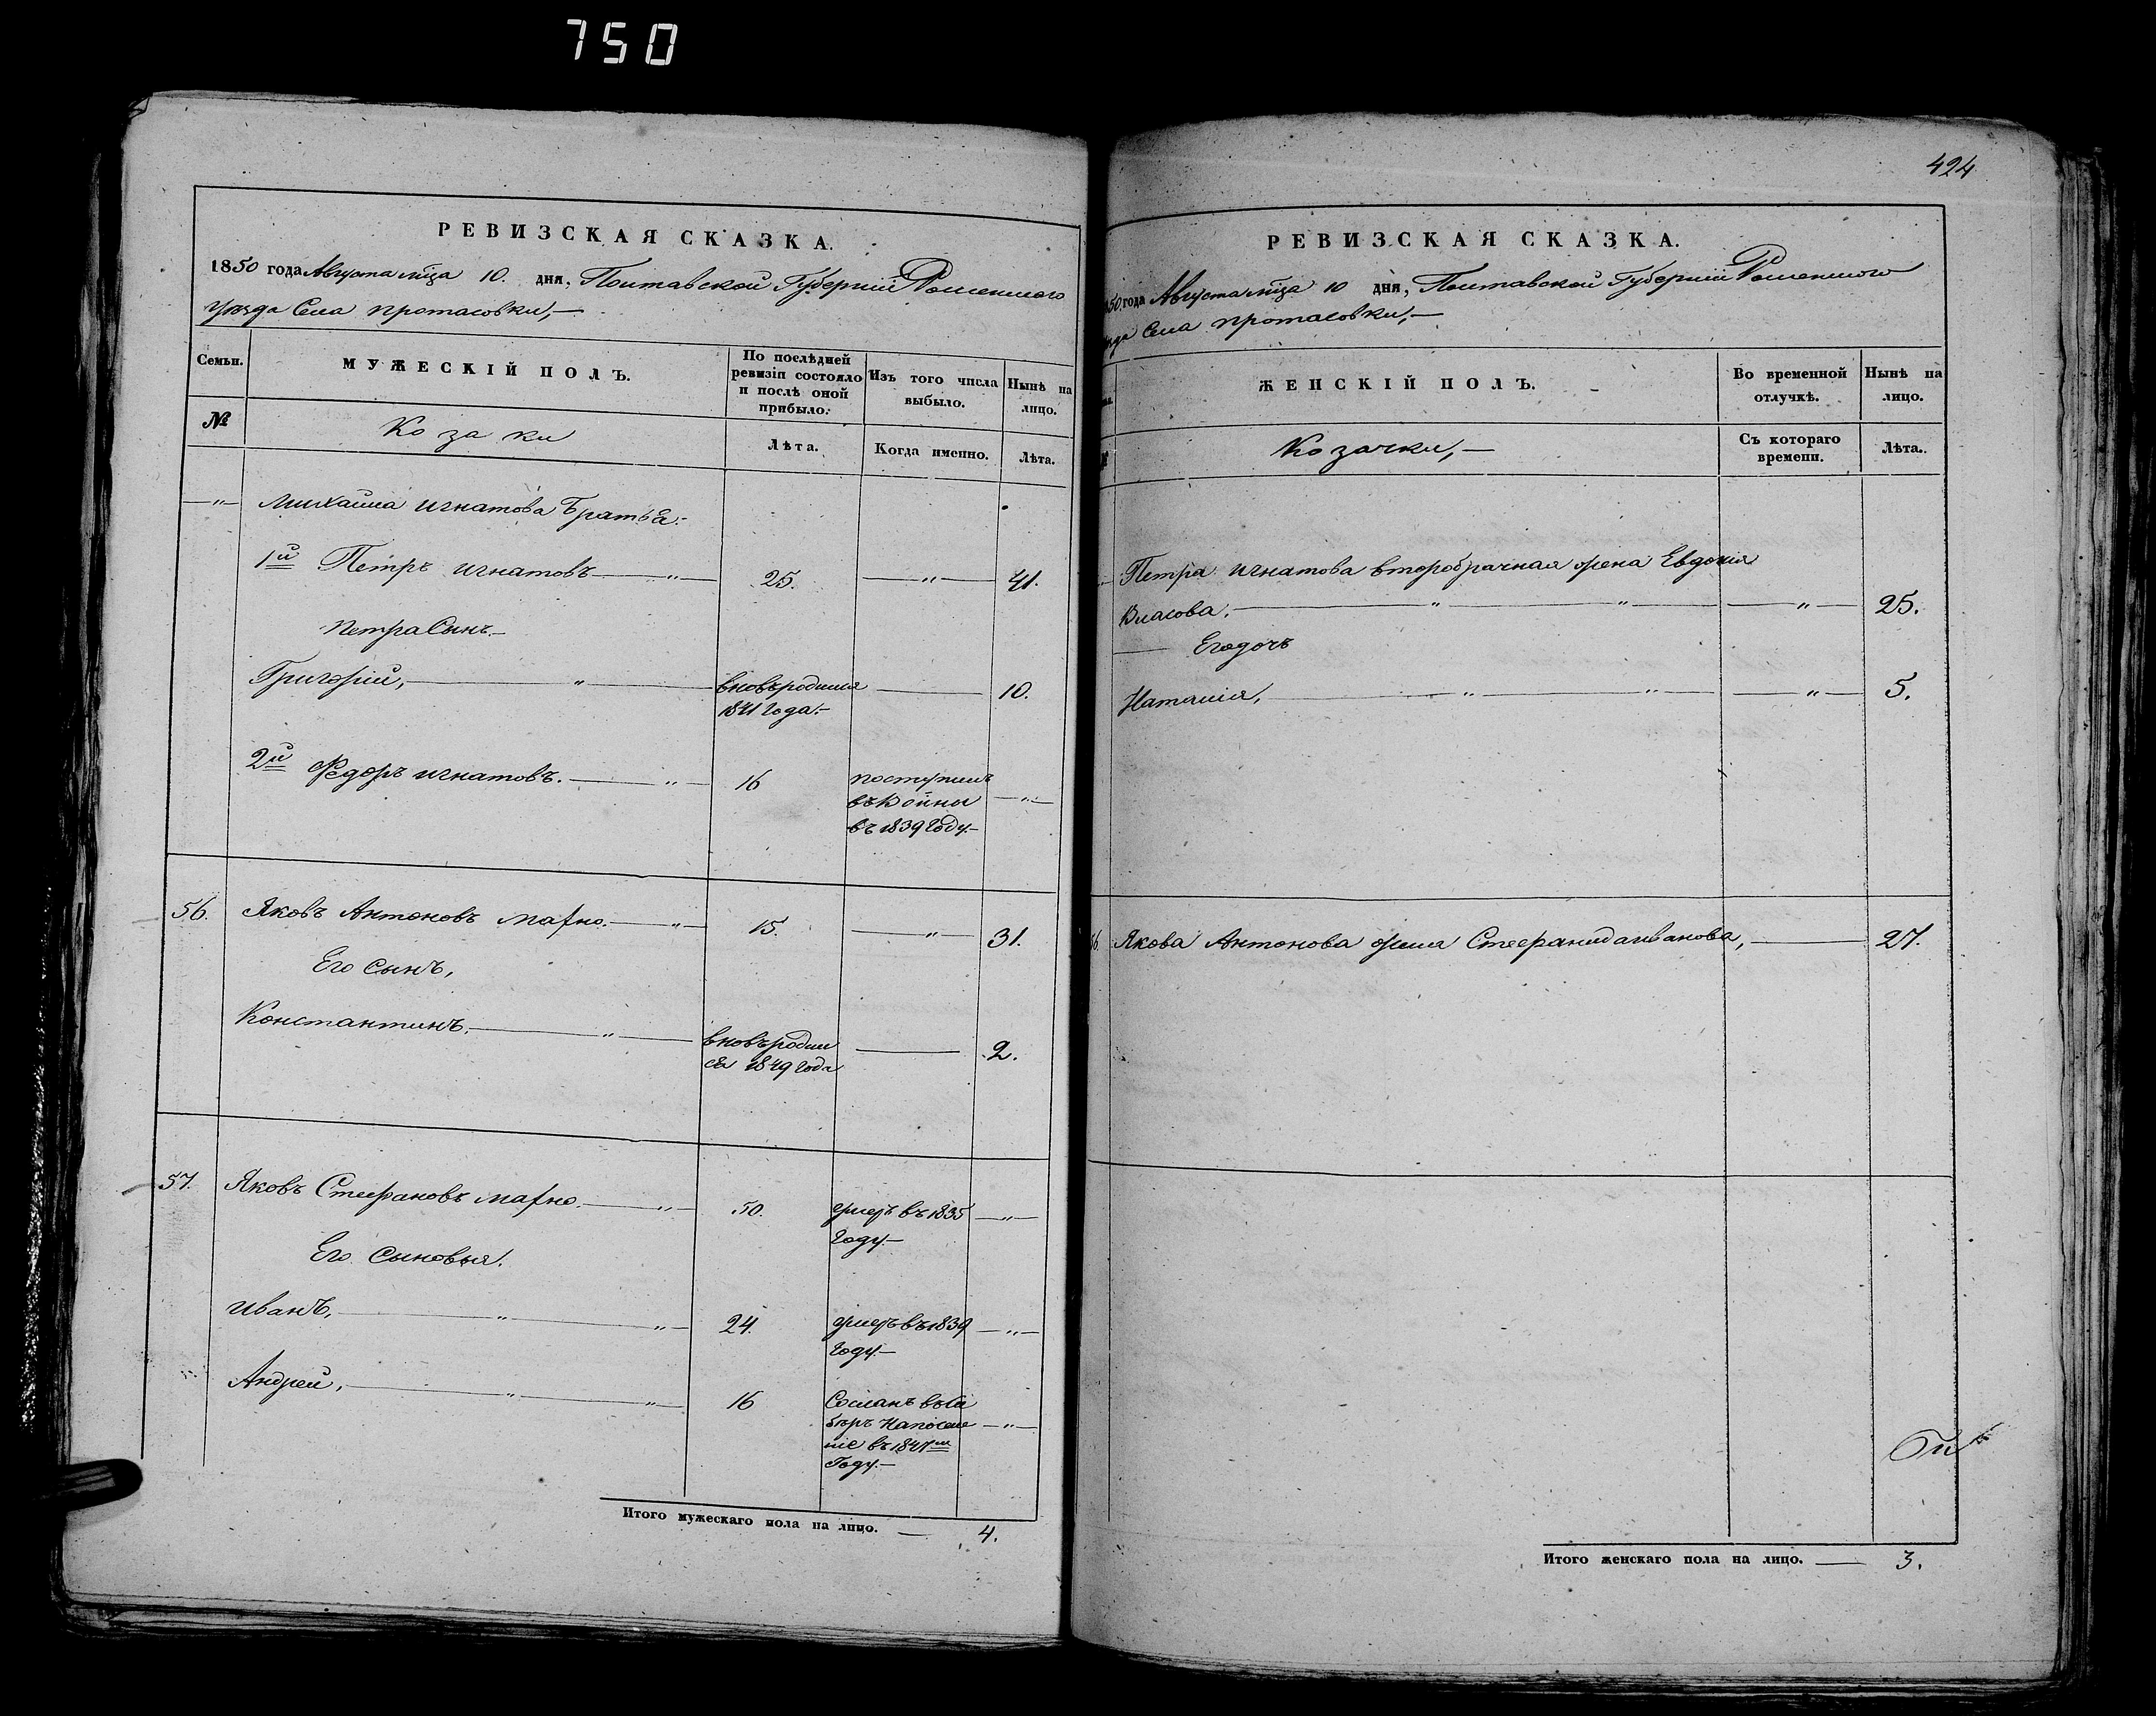 750
РЕВИЗСКАЯ СКАЗКА.
1850 года Августа мца 10. дня, Полтавской Губерніи Роменского
уѣзда Села протасовки,—
Семьи.
МУЖЕСКІЙ ПОЛЪ.
По послѣдней
ревизіи состояло
и послѣ оной
прибыло.
Изъ того числа
выбыло.
Нынѣ на
лицо.
№
Козаки
Лѣта.
Когда именно.
Лѣта.
—"— Михайла игнатова Братья:-
1й Петръ игнатовъ —"— 25. —"— 41.
Петра Сынъ.—
Григорій, —"— вновьродился — 10.
1841 года.—
2й Федоръ игнатовъ. —"— 16 поступилъ
въ Войны —"—
въ 1839 Году.—
56. Яковъ Антоновъ Махно. —"— 15. —"— 31.
Его сынъ,
Константинъ. —"— вновьродил — 2.
ся 1849 Года
57. Яковъ Стефановъ Махно. —"— 50. умеръ въ 1835 —"—
Году.—
Его Сыновья.
иванъ, —"—"— 24. умеръ въ 1839 —"—
Году.—
Андрей, —"—"— 16 Сосланъ въ Си
бѣръ Напоселе —"—
ніе въ 1847м
Году.—
Итого мужескаго пола на лицо. — 4.
424
РЕВИЗСКАЯ СКАЗКА.
850 года Августа мца 10 дня, Полтавской Губерніи Роменского
Села протасовки,—
ЖЕНСКІЙ ПОЛЪ.
Во временной
отлучкѣ.
Нынѣ на
лицо.
Козачки,—
Съ котораго
времени.
Лѣта.
Петра игнатова второбрачная жена Евдокия
Власова. —"—"— —"— 25.
— Егодочь
Наталия, —"—"— —"— 5.
56. Якова Антонова жена Стефанида иванова, — 27.
Итого женскаго пола на лицо. — 3.